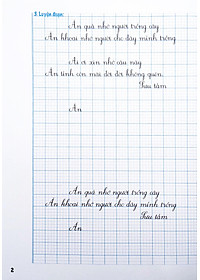 3 Luyện đoạn:
Ăn quả nhớ người trồng cây
Ăn khoai nhớ kẻ cho dây mình trồng.
Ai ơi xin nhớ câu này
Ân tình còn mãi đời đời không quên.
Sưu tầm
Ăn
Ăn quả nhớ người trồng cây
Ăn khoai nhớ kẻ cho dây mình trồng
Sưu tầm
Ăn
2